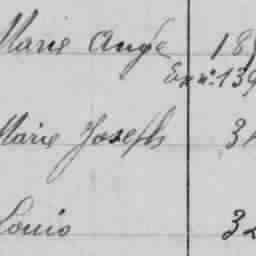 Marie Ange 189
Ex n: 139
Marie Joseph 34
Louis 32